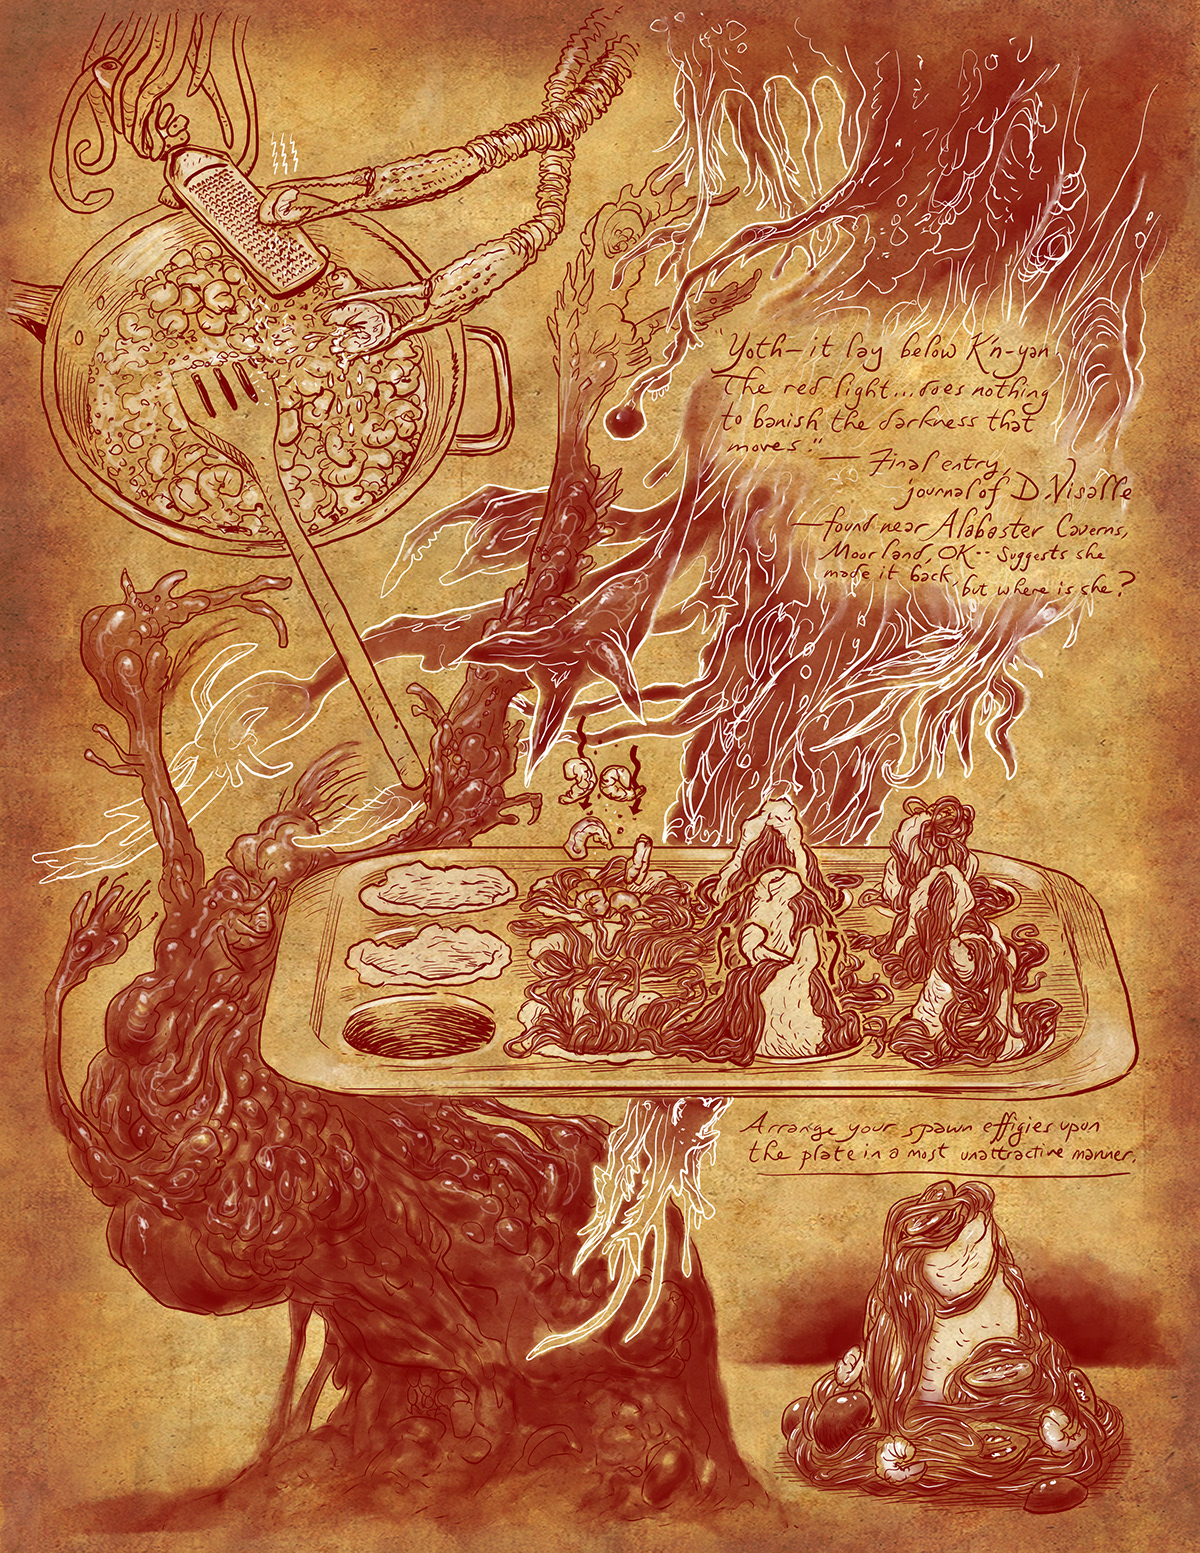 "Yoth—it lay below K'n-yan.
The red light...does nothing
to banish the darkness that
moves." — Final entry,
journal of D. Visalle
—found near Alabaster Caverns,
Moorland, OK-- Suggests she
made it back, but where is she?
Arrange your spawn effigies upon
the plate in a most unattractive manner.